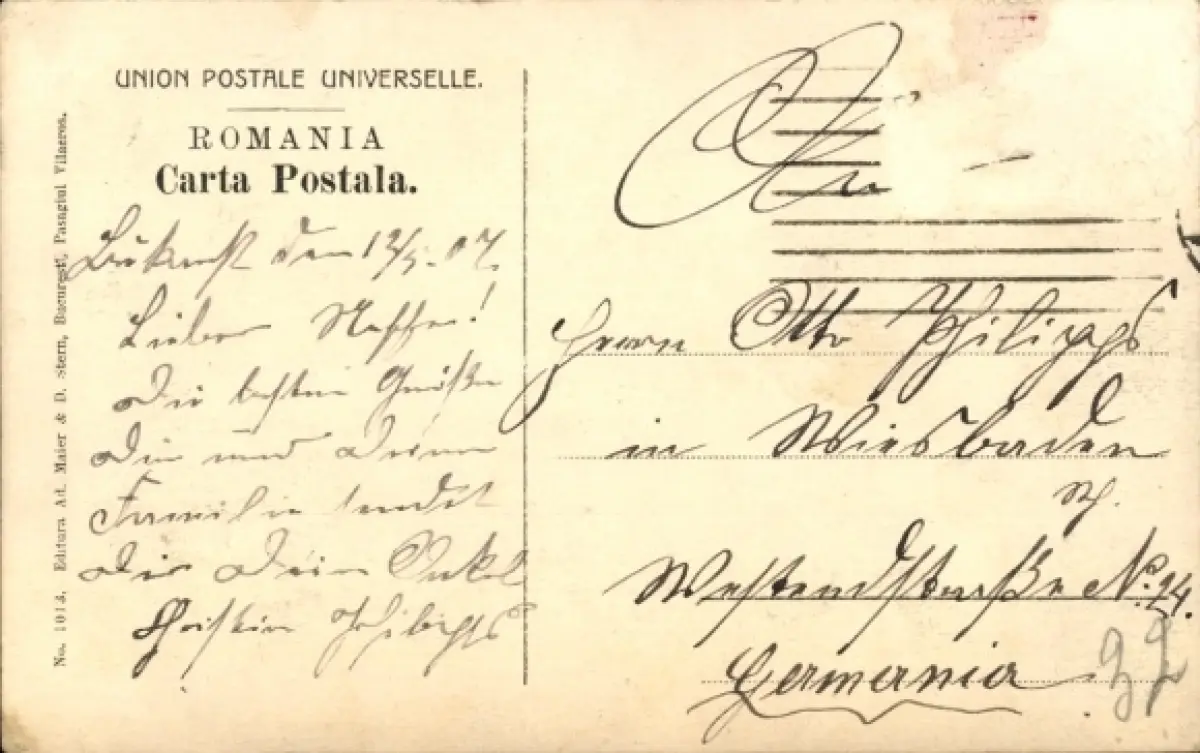 UNION POSTALE UNIVERSELLE.
ROMANIA
Carta Postala.
No. 1013. Editura Ad. Maier & D. Stern, Bucuresti, Pasagiul Vilacros.
Bukarest den 13/5. 07.
Lieber Neffe!
Die besten Grüße
Dir und Deiner
Familie sendet
Dir Dein Onkel
Philipps
An
Herrn Otto Philipps
in Wiesbaden
Westendstraße No. 24.
Germania